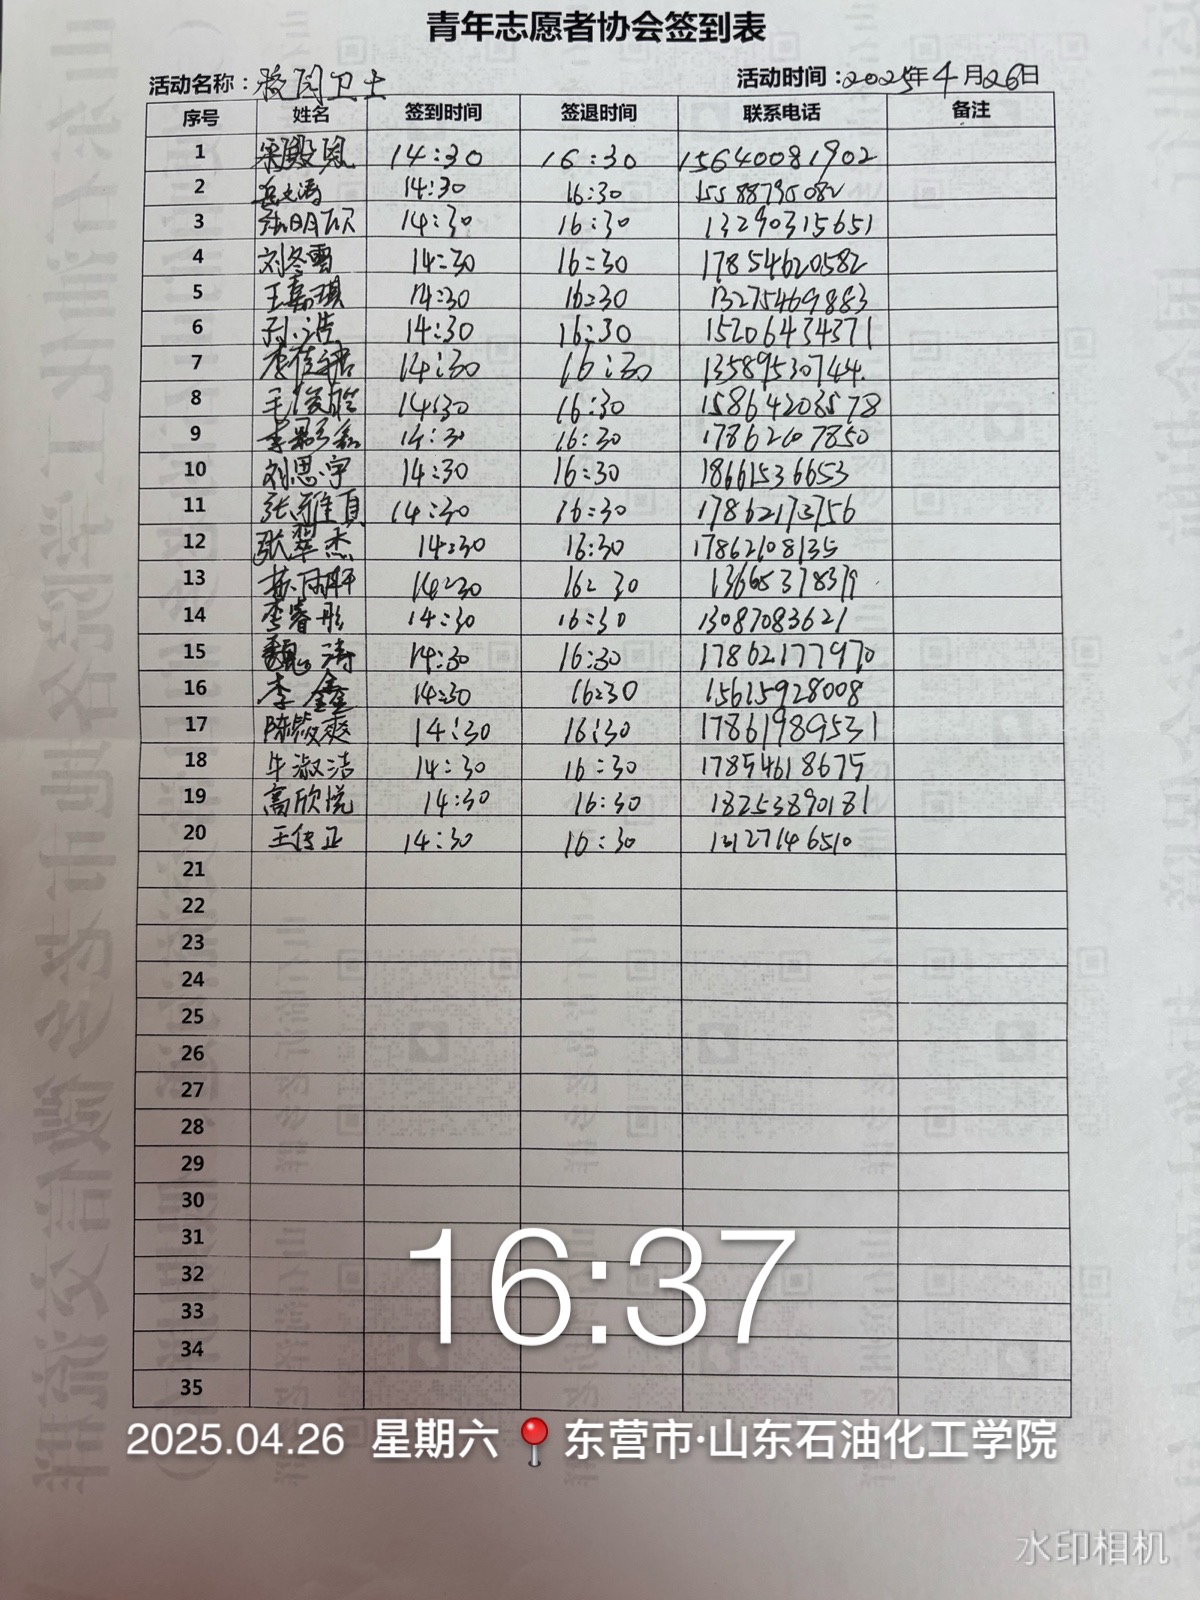 青年志愿者协会签到表
活动名称：校园卫士 活动时间：2025年4月26日
序号 姓名 签到时间 签退时间 联系电话 备注
1 14:30 16:30 15640081902
2 14:30 16:30 15588795082
3 张明欣 14:30 16:30 13290315651
4 刘冬雪 14:30 16:30 17854620582
5 王嘉琪 14:30 16:30 13275469883
6 孙浩 14:30 16:30 15206434371
7 14:30 16:30 13589530744
8 毛俊皓 14:30 16:30 15864203578
9 14:30 16:30 17862107850
10 刘思宇 14:30 16:30 18661536653
11 张雅真 14:30 16:30 17862173756
12 张翠杰 14:30 16:30 17862108135
13 14:30 16:30
14 李睿彤 14:30 16:30 13087083621
15 魏涛 14:30 16:30 17862177970
16 李鑫 14:30 16:30 15615928008
17 陈筱爽 14:30 16:30 17861989531
18 牛淑洁 14:30 16:30 17854618675
19 高欣悦 14:30 16:30 18253890181
20 王传正 14:30 16:30 13127146510
21
22
23
24
25
26
27
28
29
30
31
32
33
34
35
16:37
2025.04.26 星期六 东营市·山东石油化工学院
水印相机